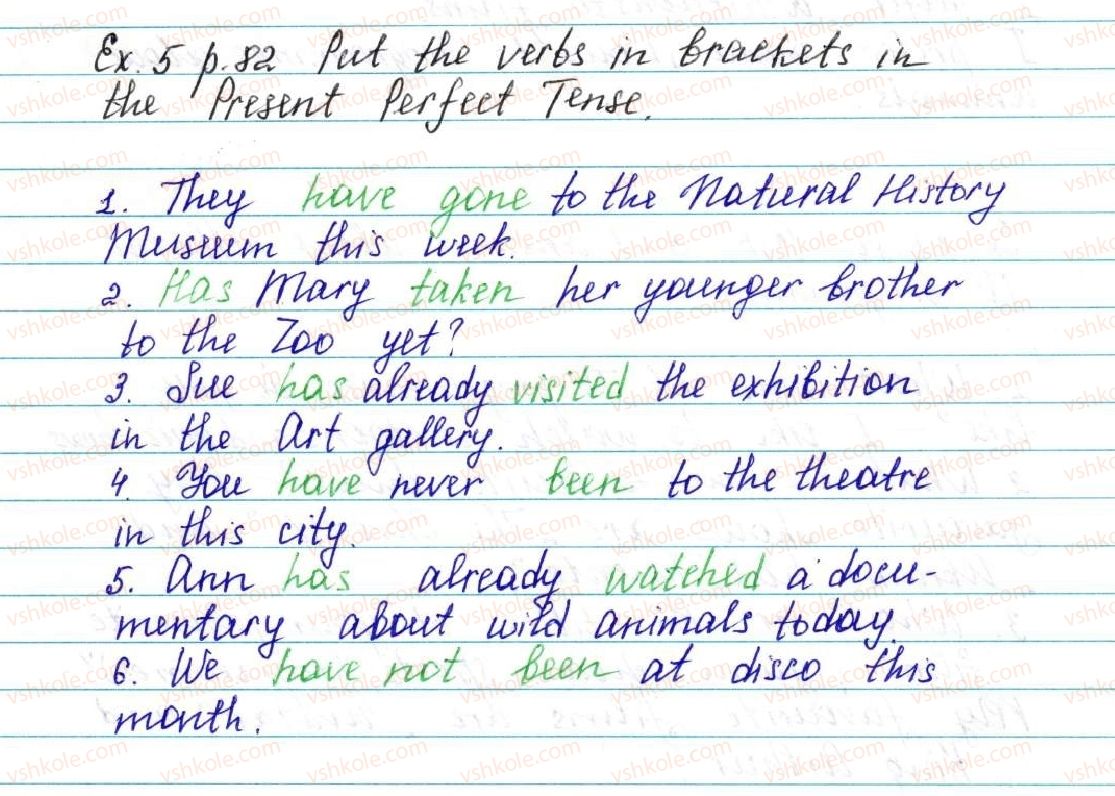 Ex. 5 p.82 Put the verbs in brackets in
the Present Perfect Tense.
1. They have gone to the Natural History
Museum this week.
2. Has Mary taken her younger brother
to the Zoo yet?
3. Sue has already visited the exhibition
in the Art gallery.
4. You have never been to the theatre
in this city.
5. Ann has already watched a docu-
mentary about wild animals today.
6. We have not been at disco this
month.